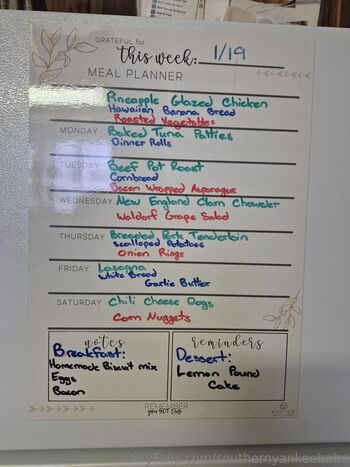 GRATEFUL for
this week: 1/19
MEAL PLANNER
Pineapple Glazed Chicken
Hawaiian Banana Bread
Roasted Vegetables
MONDAY Baked Tuna Patties
Dinner Rolls
TUESDAY Beef Pot Roast
Cornbread
Bacon Wrapped Asparagus
WEDNESDAY New England Clam Chowder
Waldorf Grape Salad
THURSDAY Breaded Pork Tenderloin
Scalloped Potatoes
Onion Rings
FRIDAY Lasagna
White Bread
Garlic Butter
SATURDAY Chili Cheese Dogs
Corn Nuggets
notes
Breakfast:
Homemade Biscuit mix
Eggs
Bacon
reminders
Dessert:
Lemon Pound
Cake
REMEMBER
you GOT this
OnlyFans.com/southernyankeebabe